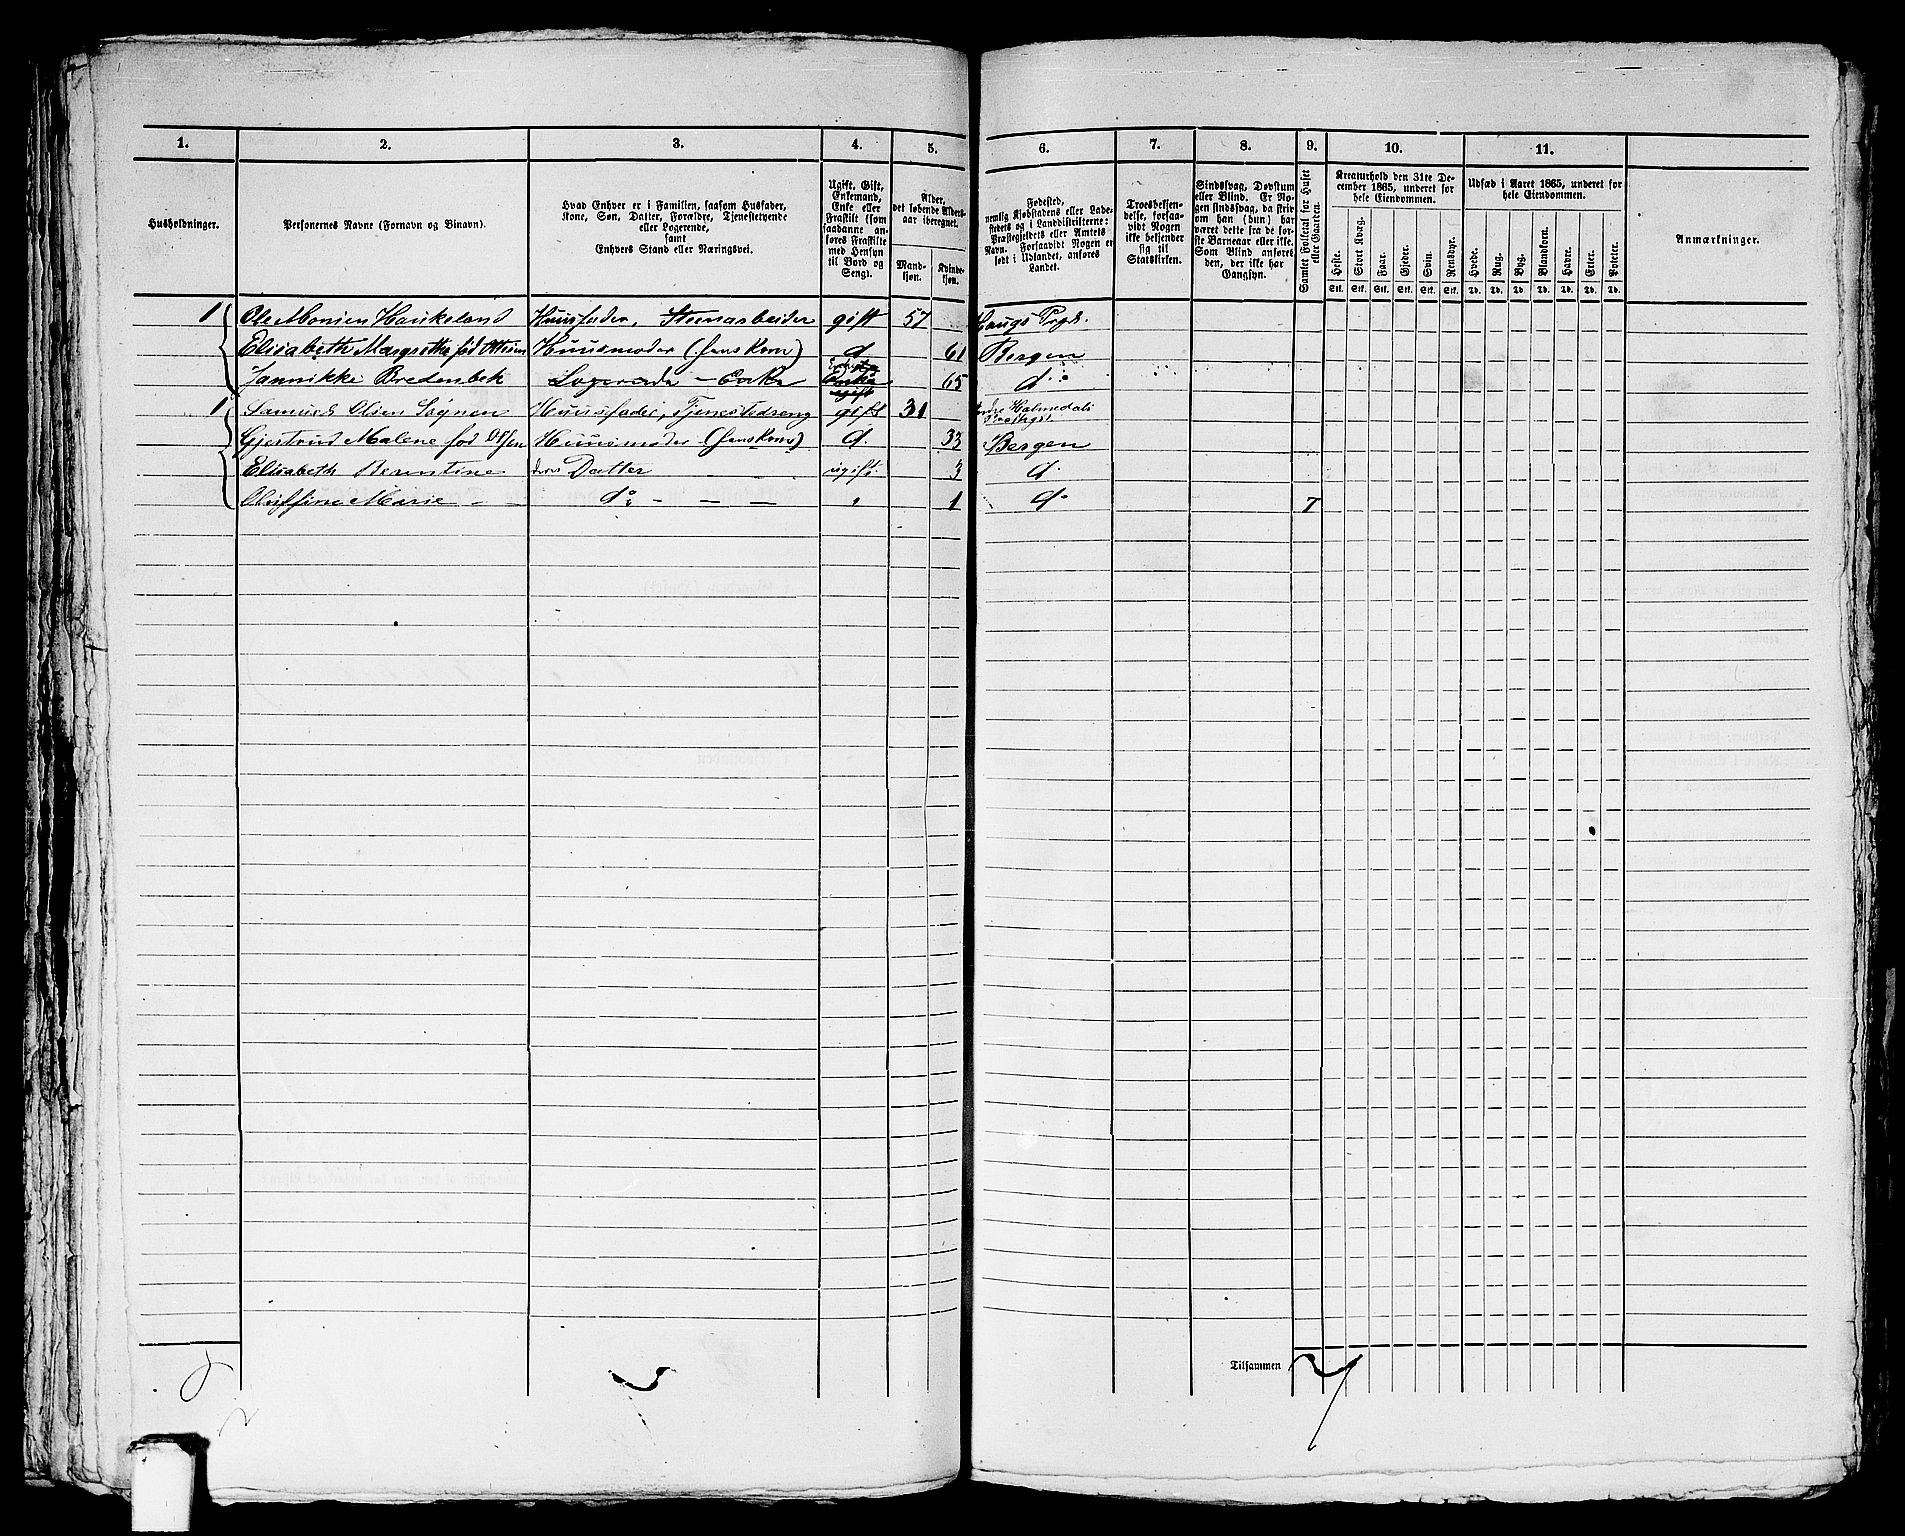 1. 2. 3. 4. 5. 6. 7. 8. 9. 10. 11.
Husholdninger.
Personernes Navne (Fornavn og Binavn).
Hvad Enhver er i Familien, saasom Husfader,
Kone, Søn, Datter, Forældre, Tjenestetyende
eller Logerende,
samt
Enhvers Stand eller Næringsvei.
Ugift, Gift,
Enkemand,
Enke eller
Fraskilt (som
saadanne an-
føres Fraskilte
med Hensyn
til Bord og
Seng).
Alder,
det løbende Alders-
aar iberegnet.
Mand-
kjøn.
Kvinde-
kjøn.
Fødested,
nemlig Kjøbstadens eller Lade-
stedets og i Landdistrikterne:
Præstegjeldets eller Amtets
Navn. Forsaavidt Nogen er
født i Udlandet, anføres
Landet.
Troesbekjen-
delse, forsaa-
vidt Nogen
ikke bekjender
sig til
Statskirken.
Sindssvag, Døvstum
eller Blind. Er No-
gen sindssvag, da skriv
om han (hun) har
været dette fra de før-
ste Barneaar eller ikke.
Som Blind anføres
den, der ikke har
Gangsyn.
Samlet Folketal for Huset
eller Gaarden.
Kreaturhold den 31te De-
cember 1865, underet for
hele Eiendommen.
Heste. Stort Kvæg. Faar. Gjeder. Svin. Rensdyr.
Stk. Stk. Stk. Stk. Stk. Stk.
Udsæd i Aaret 1865, underet for
hele Eiendommen.
Hvede. Rug. Byg. Blandkorn. Havre. Erter. Poteter.
Td. Td. Td. Td. Td. Td. Td.
Anmærkninger.
1 Ole Monsen Haukeland Huusfader, Steenarbeider gift 57 Haugs Prgd.
Elisabeth Margrethe fød Ottesen Huusmoder (hans Kone) d 61 Bergen
Jannikke Bredenbek Logerende – Enke 65 do
1 Samuel Olsen Sognen Huusfader, Tjenestedreng gift 31 Indre Holmedals
Gjertrud Malene fød Olsen Huusmoder (hans Kone) d. 33 Bergen
Elisabeth Berntine deres Datter ugift. 3 d.
Marie - - do - - - " 1 do 7
Tilsammen 7